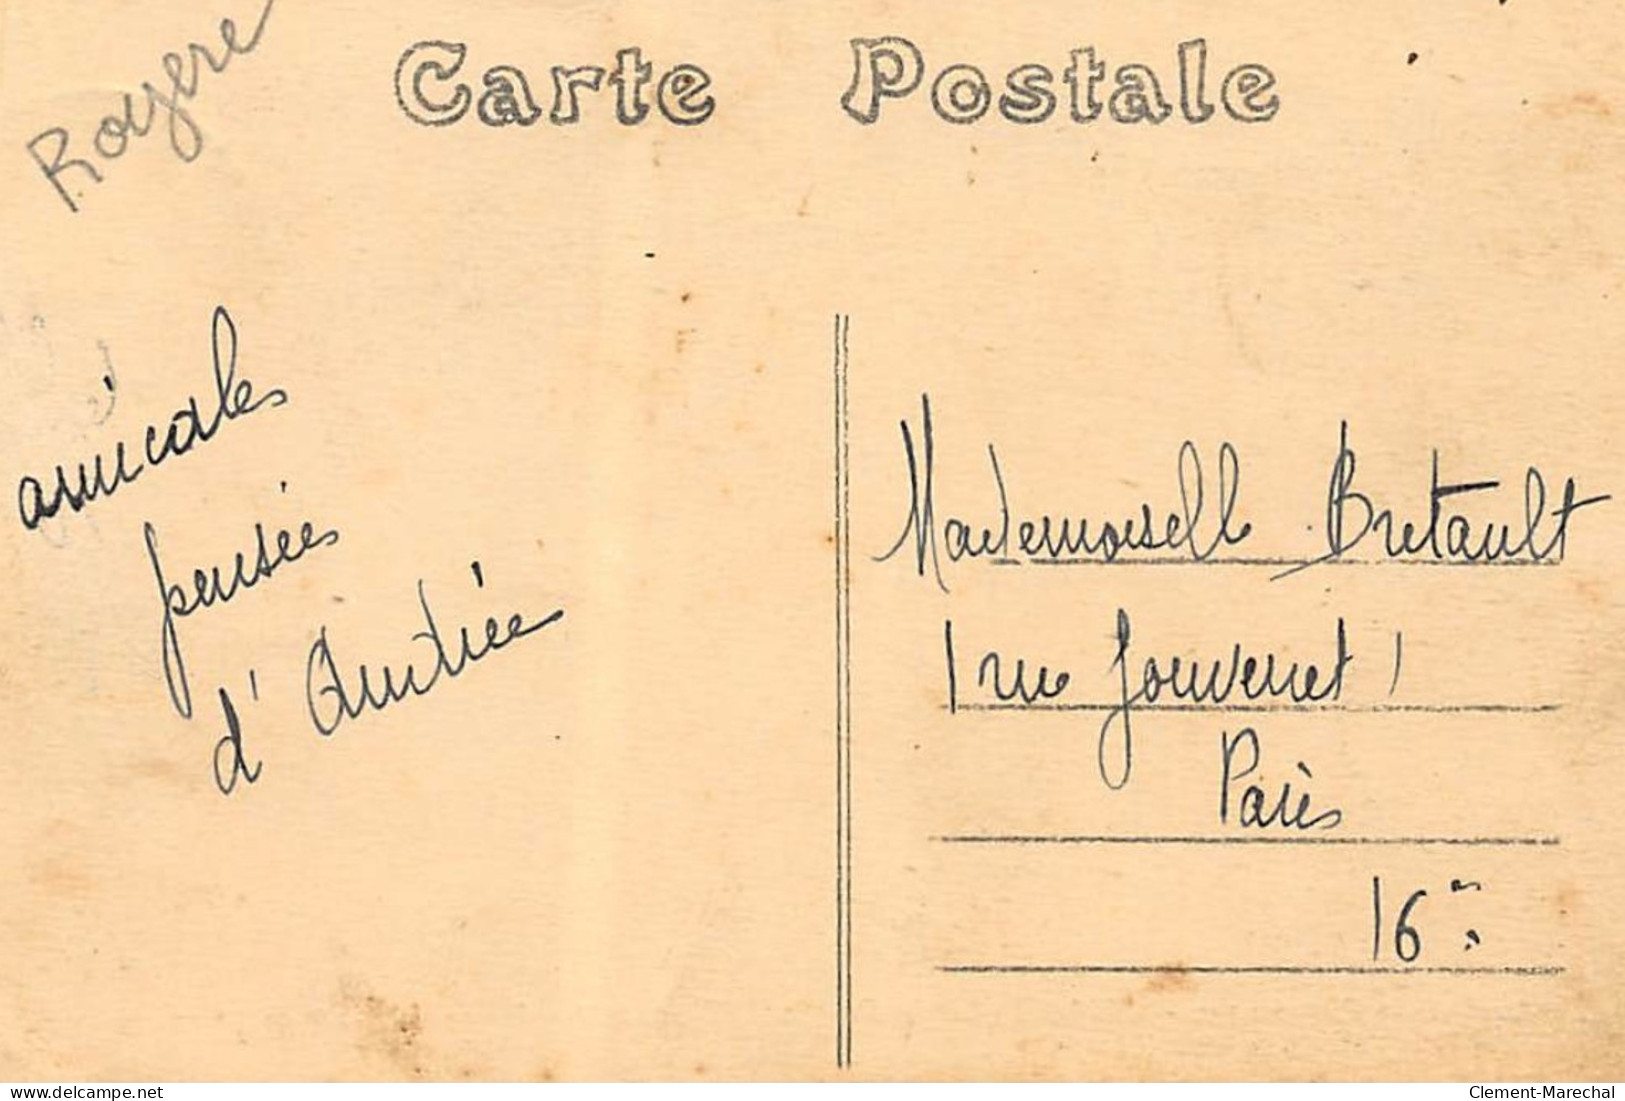 Royere
Carte Postale
amicales
pensées
d'Amitiée
Mademoiselle Bretault
1 rue Jouvenet
Paris
16
delcampe.net
Clement-Marechal